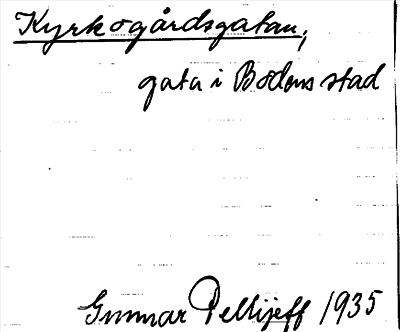 Kyrkogårdsgatan,
gata i Bodens stad
Gunnar Pellijeff 1935